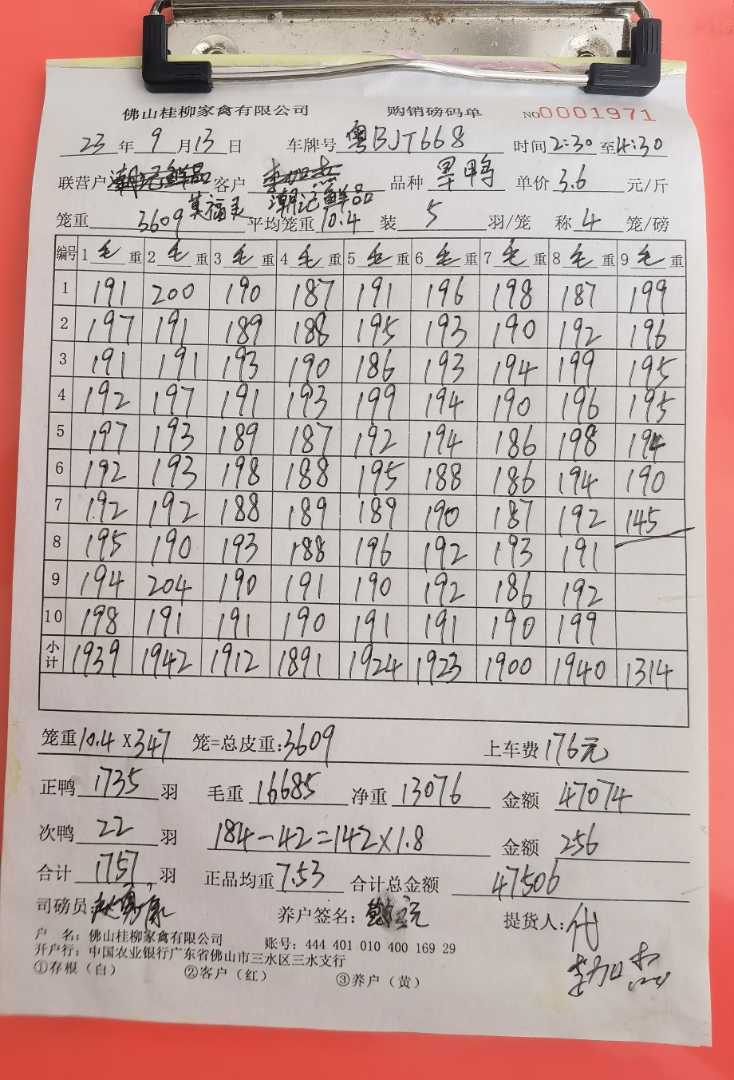 佛山桂柳家禽有限公司 购销磅码单 NO0001971
23 年 9 月 13 日 车牌号 粤BJT668 时间 2:30 至 4:30
联营户 潮记鲜品 客户 品种 单价 3.6 元/斤
潮记鲜品
笼重 3609 平均笼重 10.4 装 5 羽/笼 称 4 笼/磅
编号 1 毛 重 2 毛 重 3 毛 重 4 毛 重 5 毛 重 6 毛 重 7 毛 重 8 毛 重 9 毛 重
1 191 200 190 187 191 196 198 187 199
2 197 191 189 188 195 193 190 192 196
3 191 191 193 190 186 193 194 199 195
4 192 197 191 193 199 194 190 196 195
5 197 193 189 187 192 194 186 198 194
6 192 193 198 188 195 188 186 194 190
7 192 192 188 189 189 190 187 192 145
8 195 190 193 188 196 192 193 191
9 194 204 190 191 190 192 186 192
10 198 191 191 190 191 191 190 199
小计 1939 1942 1912 1891 1924 1923 1900 1940 1314
笼重10.4 X347 笼=总皮重:3609 上车费 176元
正鸭 1735 羽 毛重 16685 净重 13076 金额 47074
次鸭 22 羽 184-42=142×1.8 金额 256
合计 1757 羽 正品均重 7.53 合计总金额 47506
司磅员 养户签名: 提货人: 代
户 名: 佛山桂柳家禽有限公司 账号: 444 401 010 400 169 29
开户行: 中国农业银行广东省佛山市三水区三水支行
①存根(白) ②客户(红) ③养户(黄)